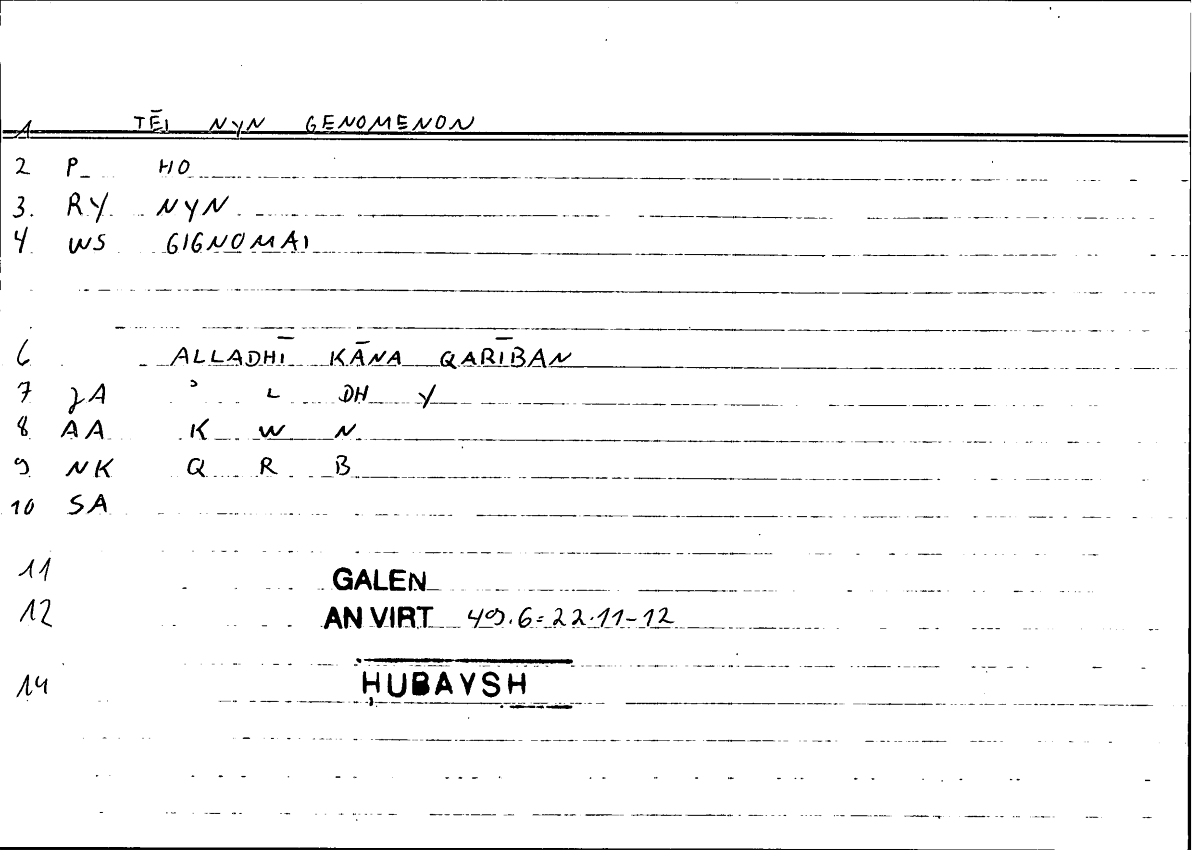 1 TĒI NYN GENOMENON
2 P_ HO
3. RY NYN
4. WS GIGNOMAI
6 ALLADHĪ KĀNA QARĪBAN
7 JA ʾ L DH Y
8 AA K W N
9 NK Q R B
10 SA
11 GALEN
12 AN VIRT 49.6=22.11-12
14 HUBAYSH